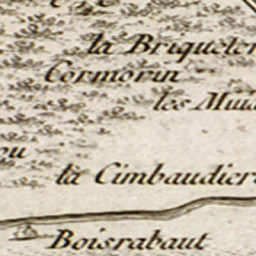 la Briqueter
Cormorin
les Muid
ou
la Cimbaudier
Boisrabaut